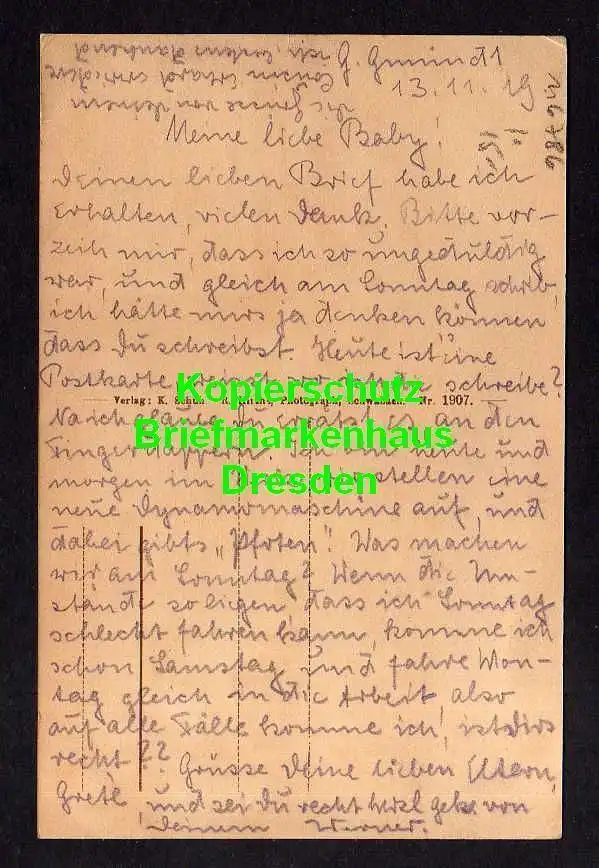 G. Gmünd 1
13.11.19
Meine liebe Baby!
Deinen lieben Brief habe ich
erhalten, vielen Dank. Bitte ver-
zeih mir, dass ich so ungeduldig
war, und gleich am Sonntag schrib,
ich hätte mirs ja denken können
dass Du schreibst. Heute ist eine
Postkarte schreibe?
Verlag: K. Photograph, Schwabach, Nr. 1907.
Na ich glaube Du an den
Fingerklappern. Ich heute und
morgen im stellen eine
neue Dynamomaschine auf, und
dabei gibts „Pfoten“! Was machen
wir am Sonntag? Wenn die Um-
stände so ligen, dass ich Sonntag
schlecht fahren kann, komme ich
schon Samstag und fahre Mon-
tag gleich in die Arbeit, also
auf alle Fälle komme ich, ist Dirs
recht?? Grüsse Deine lieben Eltern,
Grete, und sei Du recht herzl. gek. von
Deinem Werner.
Kopierschutz
Briefmarkenhaus
Dresden